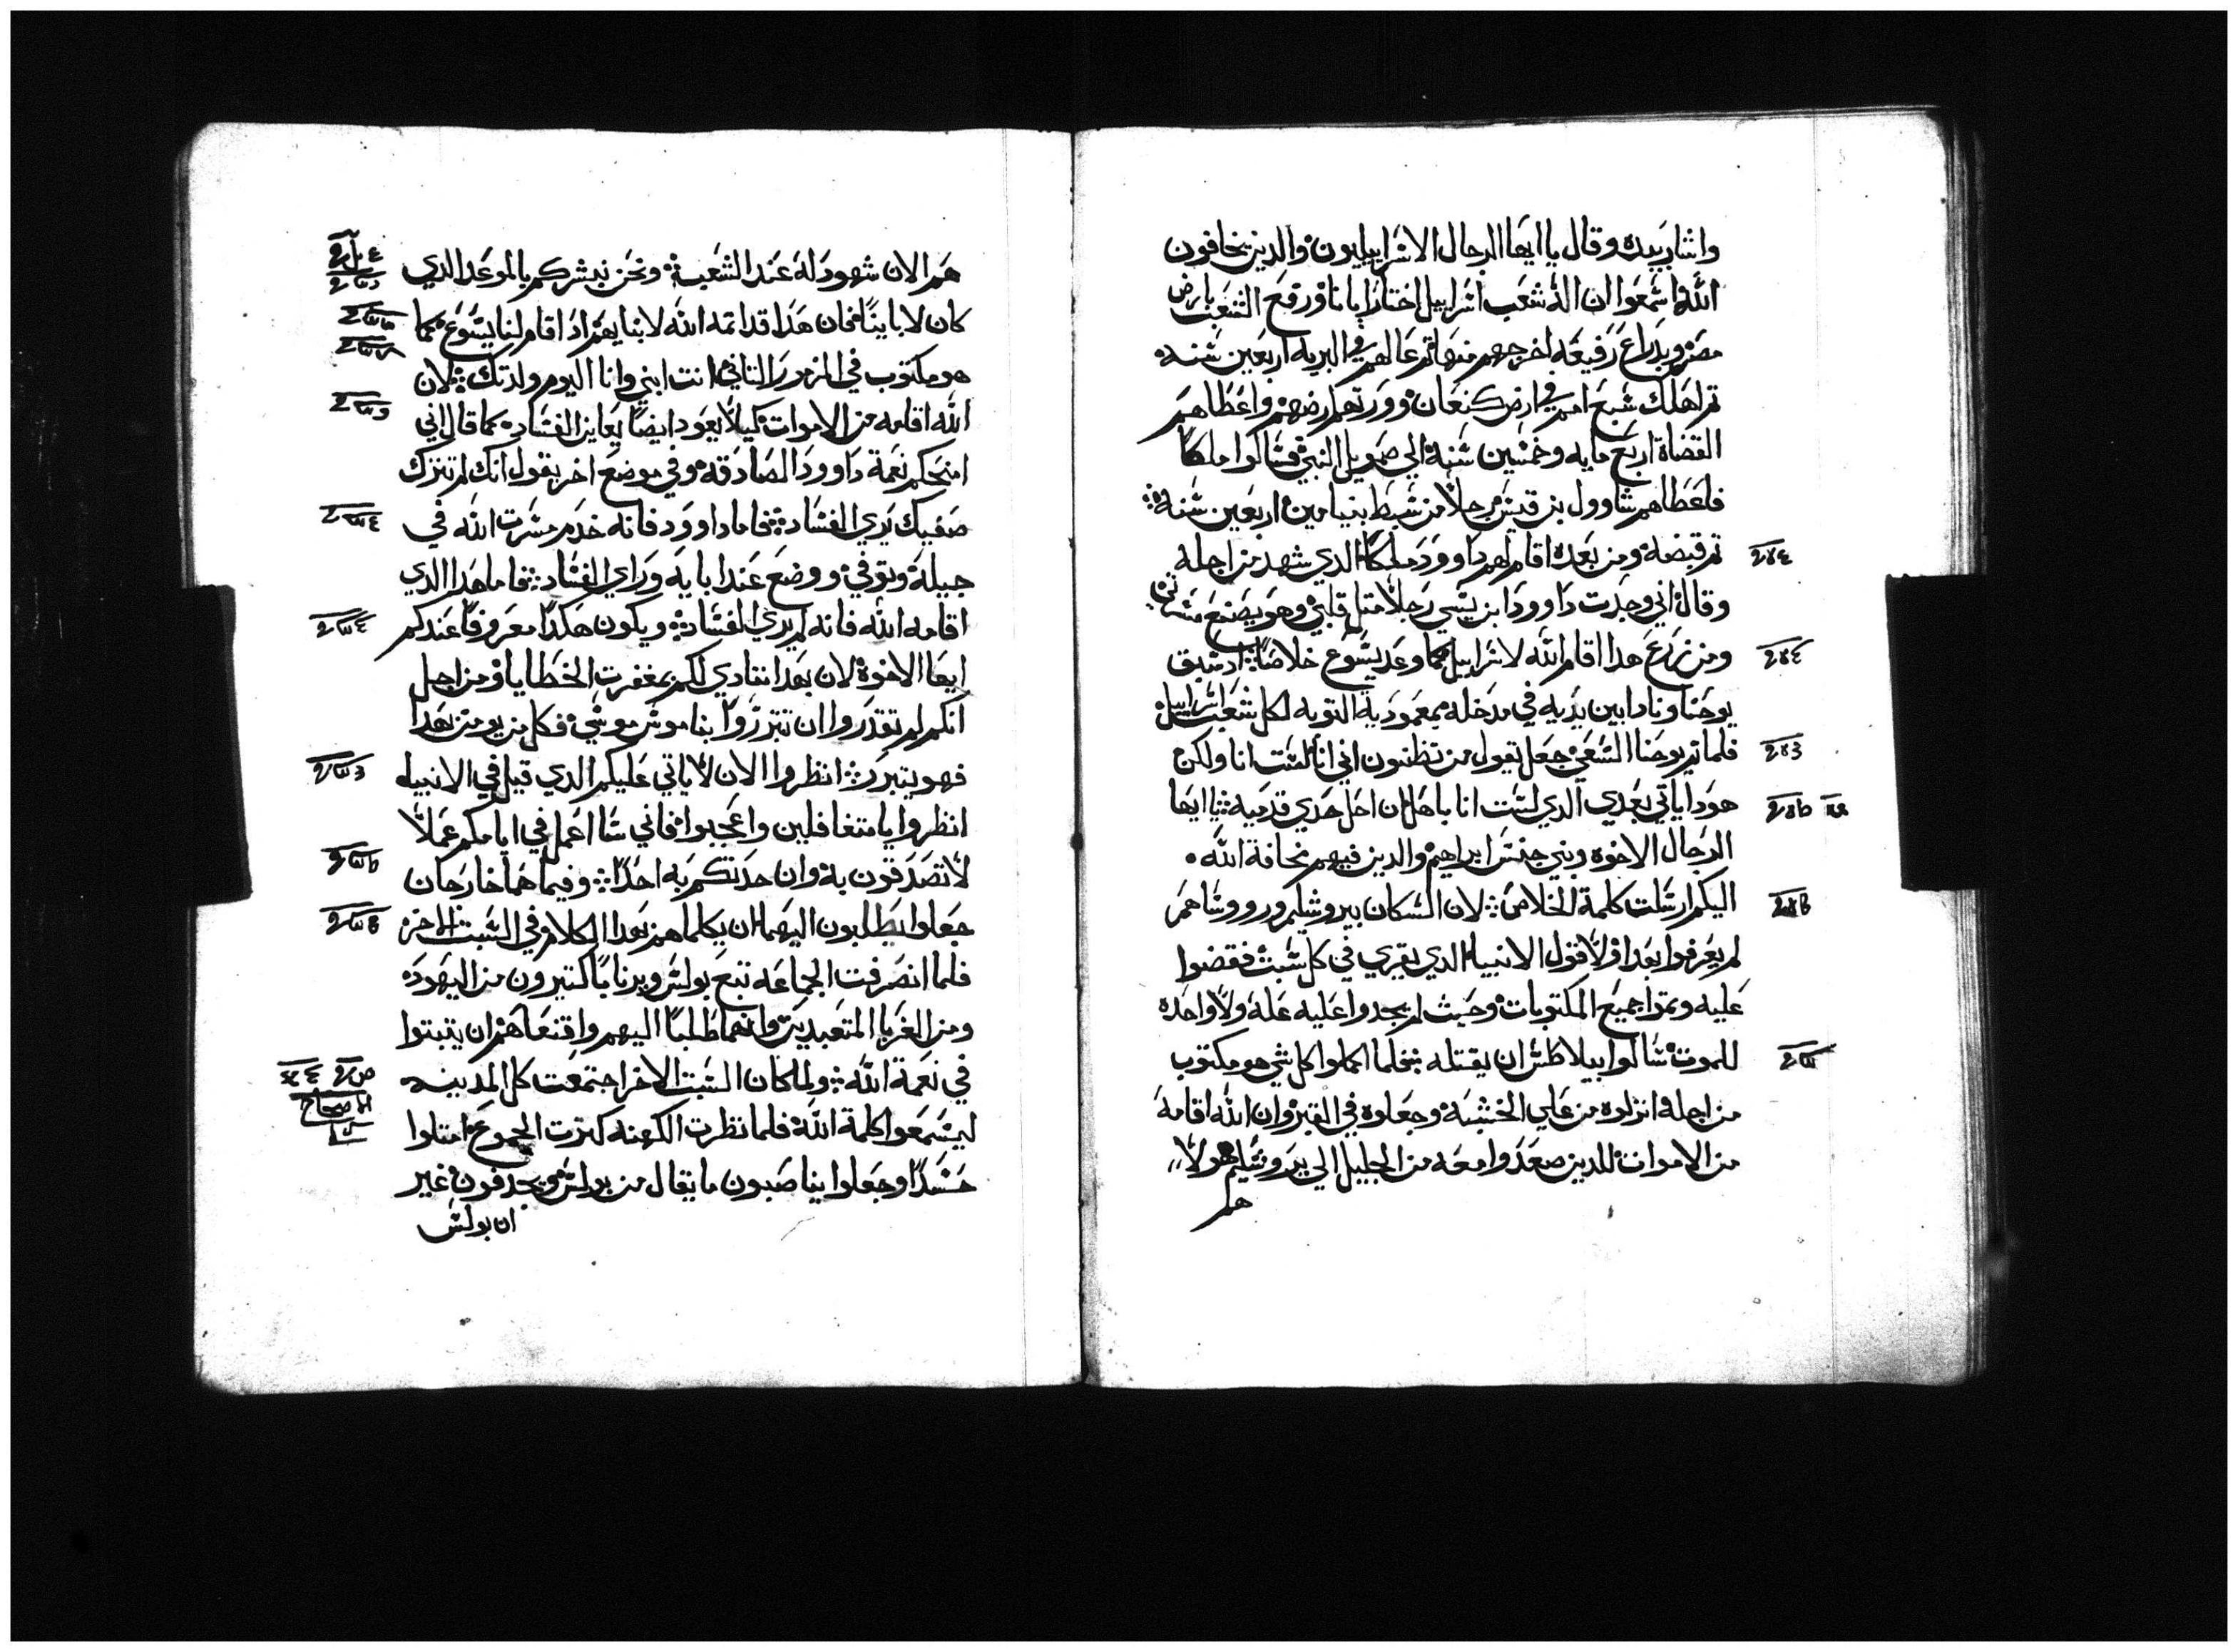 واشار بيده وقال يا ايها الرجال الاسراييليون والدين يخافون
الله اسمعوا ان اله شعب اسراييل اختار ابانا ورفع الشعب بارض
مصر وبدراع رفيعه اخرجهم منها تم عالهم في البريه اربعين سنه
تم اهلك سبع امم في ارض كنعان وورتهم ارضهم واعطاهم
القضاة اربع مايه وخمسين سنه الي صمويل النبي فسالوا ملكا
فاعطاهم شاوول بن قيس رجلا من سبط بنيامين اربعين سنه
تم قبضه ومن بعده اقام لهم داوود ملكا الدي شهد من اجله
وقال اني وجدت داوود ابن يسي رجلا متل قلبي وهو يصنع مسرتي
ومن زرع هدا اقام الله لاسراييل كما وعد يسوع خلاصا اد سبق
يوحنا ونادا بين يديه في مدخله بمعمودية التوبه لكل شعب اسراييل
فلما تم يوحنا السعي جعل يقول من تظنون اني انا لست انا ولكن
هودا ياتي بعدي الدي لست انا باهل ان احل حدي قدميه يا ايها
الرجال الاخوه وبني جنس ابراهيم والدين فيهم مخافة الله
اليكم ارسلت كلمة الخلاص لان السكان بيروشليم وروساهم
لم يعرفوا بهدا ولا قول الانبيا الدي يقري في كل سبت فقضوا
عليه وتموا جميع المكتوبات وحيث لم يجدوا عليه علة ولا واحده
للموت سالوا بيلاطس ان يقتله فلما اكملوا كل شي هو مكتوب
من اجله انزلوه من علي الخشبه وجعلوه في القبر وان الله اقامه
من الاموات للدين صعدوا معه من الجليل الي يروشليم هولا
هم
هم الان شهود له عند الشعب ونحن نبشركم بالموعد الدي
كان لابايينا فان هدا قد اتمه الله لابنايهم اد اقام لنا يسوع كما
هو مكتوب في المزمور التاني انت ابني وانا اليوم ولدتك لان
الله اقامه من الاموات كيلا يعود ايضا يعاين الفساد كما قال اني
امنحكم نعمة داوود الصادقه وفي موضع اخر يقول انك لم تترك
صفيك يري الفساد فاما داوود فانه خدم مسرت الله في
جيله وتوفي ووضع عند ابايه وراي الفساد فاما هدا الدي
اقامه الله فانه لم يري الفساد ويكون هكدا معروفا عندكم
ايها الاخوة لان بهدا ننادي لكم بمغفرت الخطايا ومن اجل
انكم لم تقدروا ان تتبرروا بناموس موسي فكل من يومن بهدا
فهو يتبرر انظروا الان لا ياتي عليكم الدي قيل في الانبياء
انظروا يا متغافلين واعجبوا فاني سا اعمل في ايامكم عملا
لا تصدقون به وان حدتكم به احدا وفيما هما خارجان
جعلوا يطلبون اليهما ان يكلماهم بهدا الكلام في السبت الاخر
فلما انصرفت الجماعه تبع بولس وبرنابا كتيرون من اليهود
ومن الغربا المتعبدين وانهما طلبا اليهم واقنعاهم ان يتبتوا
في نعمة الله ولما كان السبت الاخر اجتمعت كل المدينه
الاصحاح
ليسمعوا كلمة الله فلما نظرت الكهنه كترت الجموع امتلوا
حسدا وجعلوا يناصبون ما يقال من بولس ويجدفون غير
ان بولس